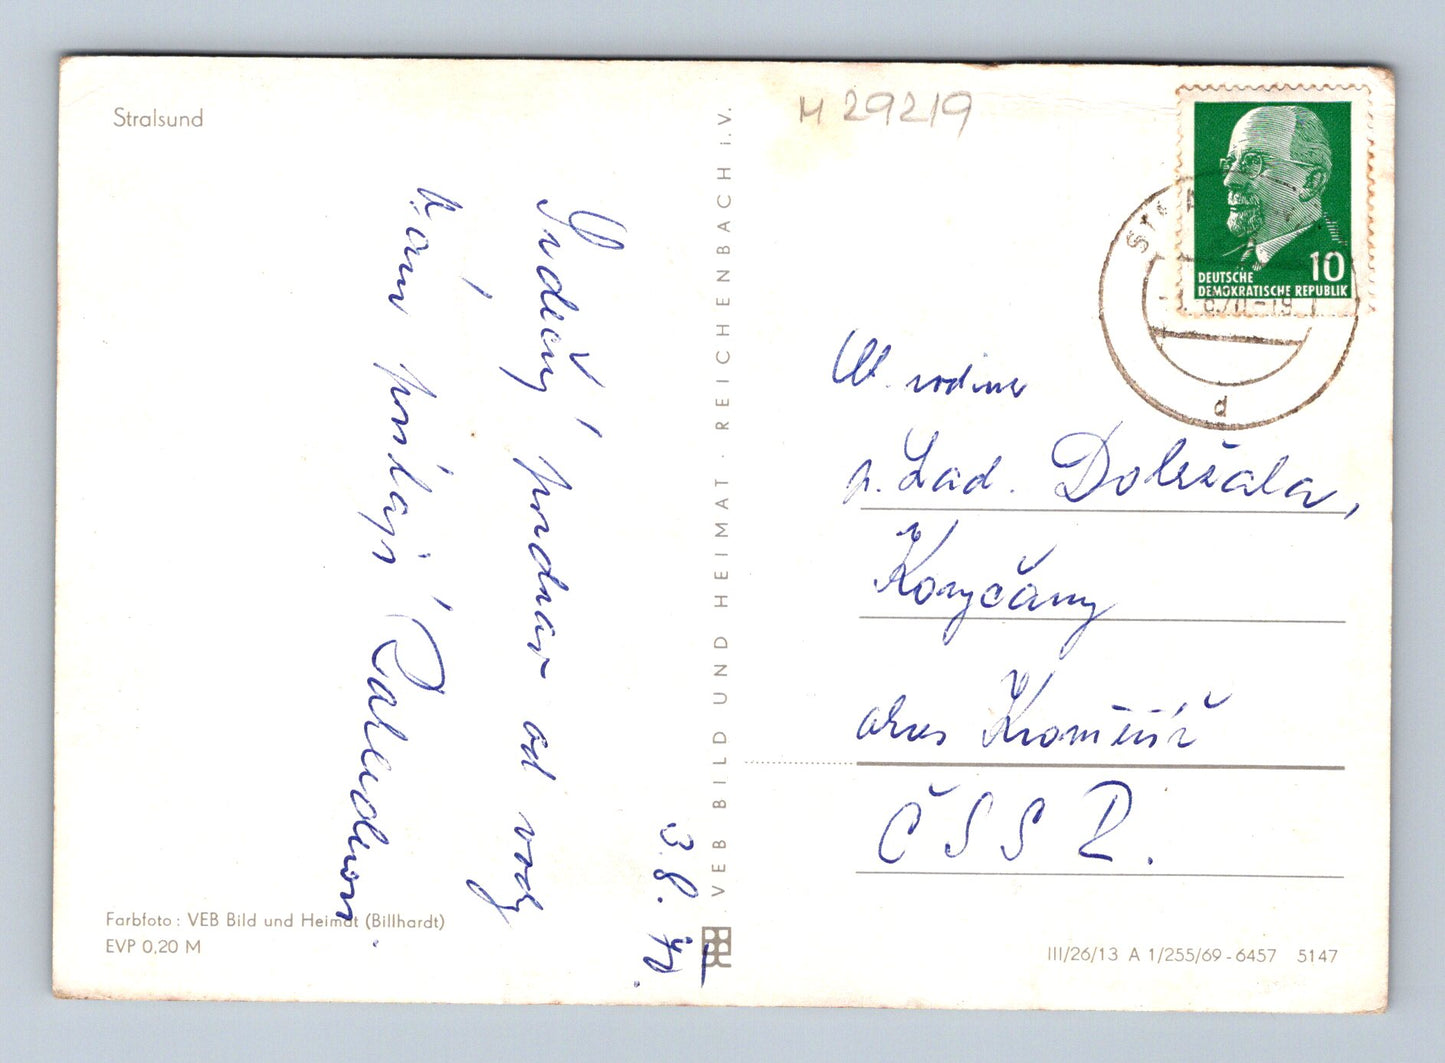 Stralsund
M 29219
Srdečný pozdrav od vody
Vám posílají
3.8.70.
VEB BILD UND HEIMAT · REICHENBACH i. V.
DEUTSCHE
DEMOKRATISCHE REPUBLIK
10
d
Vl. rodina
p. Lad. Doležala,
Koryčany
okres Kroměříž
ČSSR.
Farbfoto: VEB Bild und Heimat (Billhardt)
EVP 0,20 M
III/26/13 A 1/255/69-6457 5147